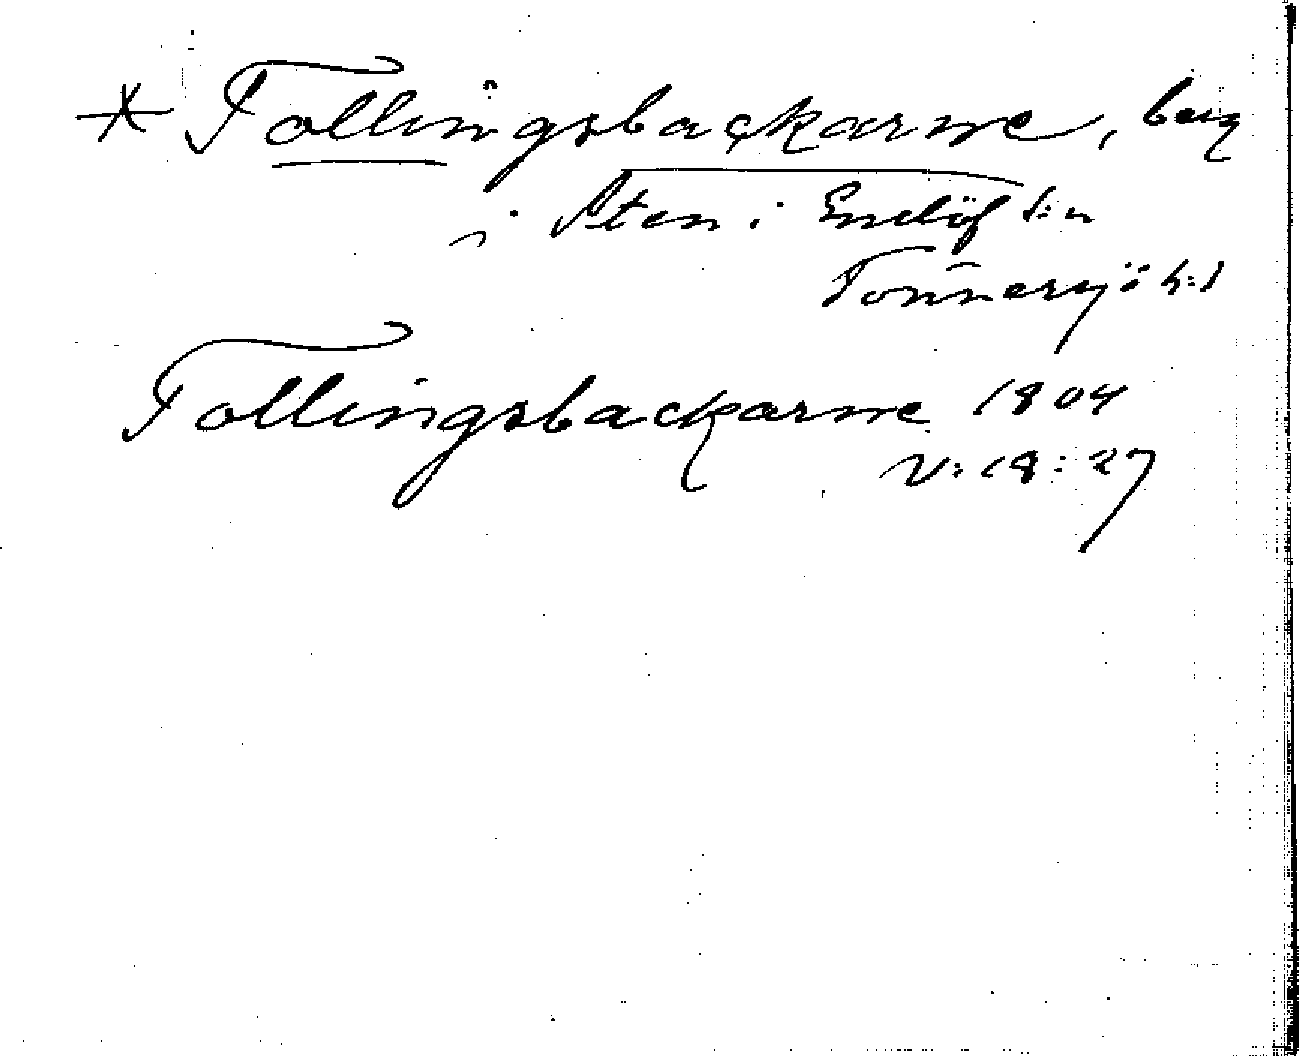 * Tollingsbackarne, berg
i Sten i Enslöf s:n
Tönnersjö h:d
Tollingsbackarne 1804
V:18:27